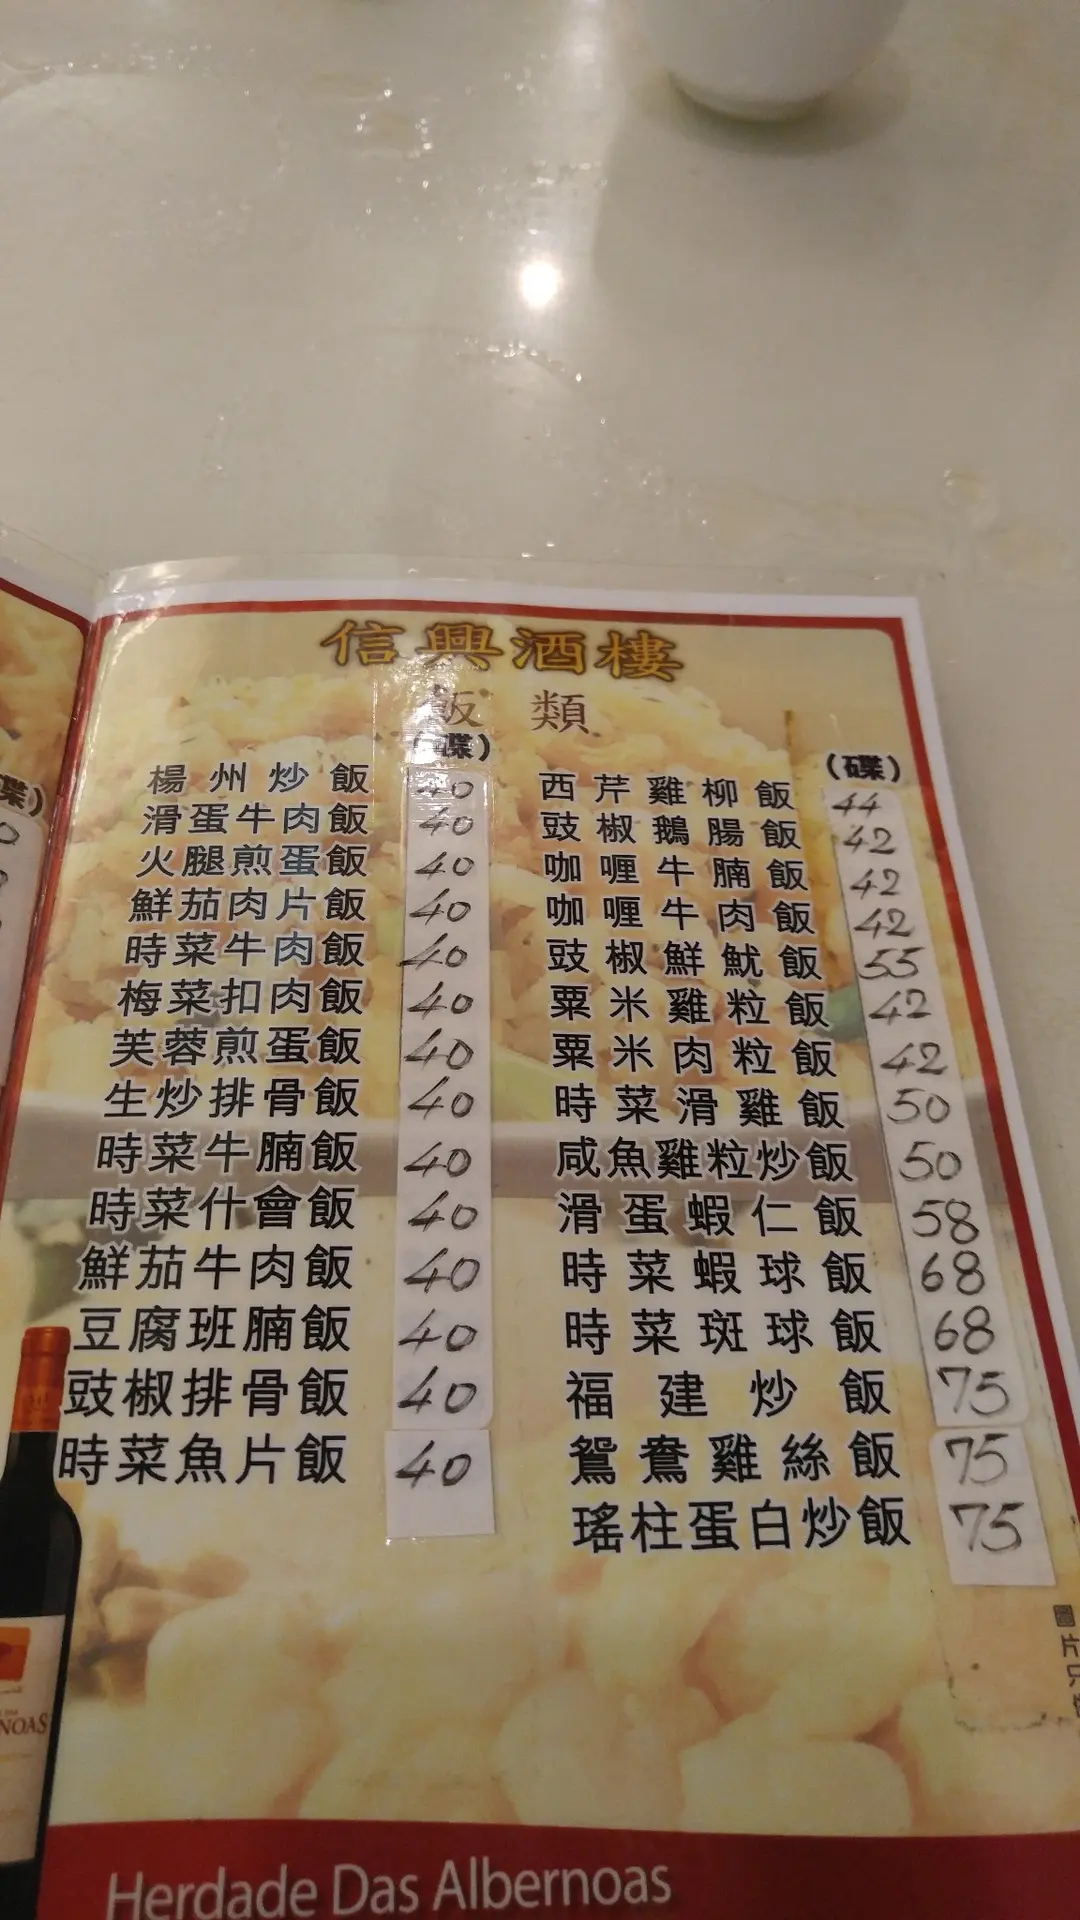 信興酒樓
飯類
(碟)
楊州炒飯 40
滑蛋牛肉飯 40
火腿煎蛋飯 40
鮮茄肉片飯 40
時菜牛肉飯 40
梅菜扣肉飯 40
芙蓉煎蛋飯 40
生炒排骨飯 40
時菜牛腩飯 40
時菜什會飯 40
鮮茄牛肉飯 40
豆腐班腩飯 40
豉椒排骨飯 40
時菜魚片飯 40
(碟)
西芹雞柳飯 44
豉椒鵝腸飯 42
咖喱牛腩飯 42
咖喱牛肉飯 42
豉椒鮮魷飯 55
粟米雞粒飯 42
粟米肉粒飯 42
時菜滑雞飯 50
咸魚雞粒炒飯 50
滑蛋蝦仁飯 58
時菜蝦球飯 68
時菜斑球飯 68
福建炒飯 75
鴛鴦雞絲飯 75
瑤柱蛋白炒飯 75
圖片只
NOAS
Herdade Das Albernoas